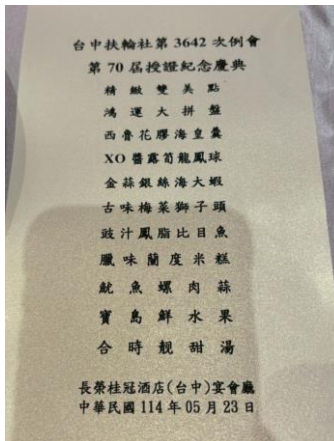 台中扶輪社第3642次例會
第70屆授證紀念慶典
精緻雙美點
鴻運大拼盤
西魯花膠海皇羹
XO醬露筍龍鳳球
金蒜銀絲海大蝦
古味梅菜獅子頭
豉汁鳳脂比目魚
臘味蘭度米糕
魷魚螺肉蒜
寶島鮮水果
合時靓甜湯
長榮桂冠酒店(台中)宴會廳
中華民國114年05月23日